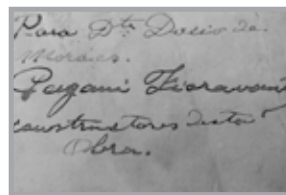 Para Dta Dacio de
Moraes.
Pagani Fioravan
constructores desta
Obra.